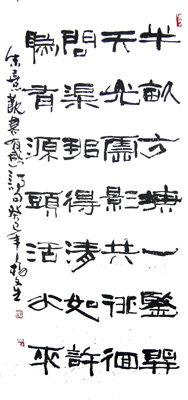 半畝方塘一鑒開
天光雲影共徘徊
問渠那得清如許
為有源頭活水來
朱熹觀書有感 癸巳年